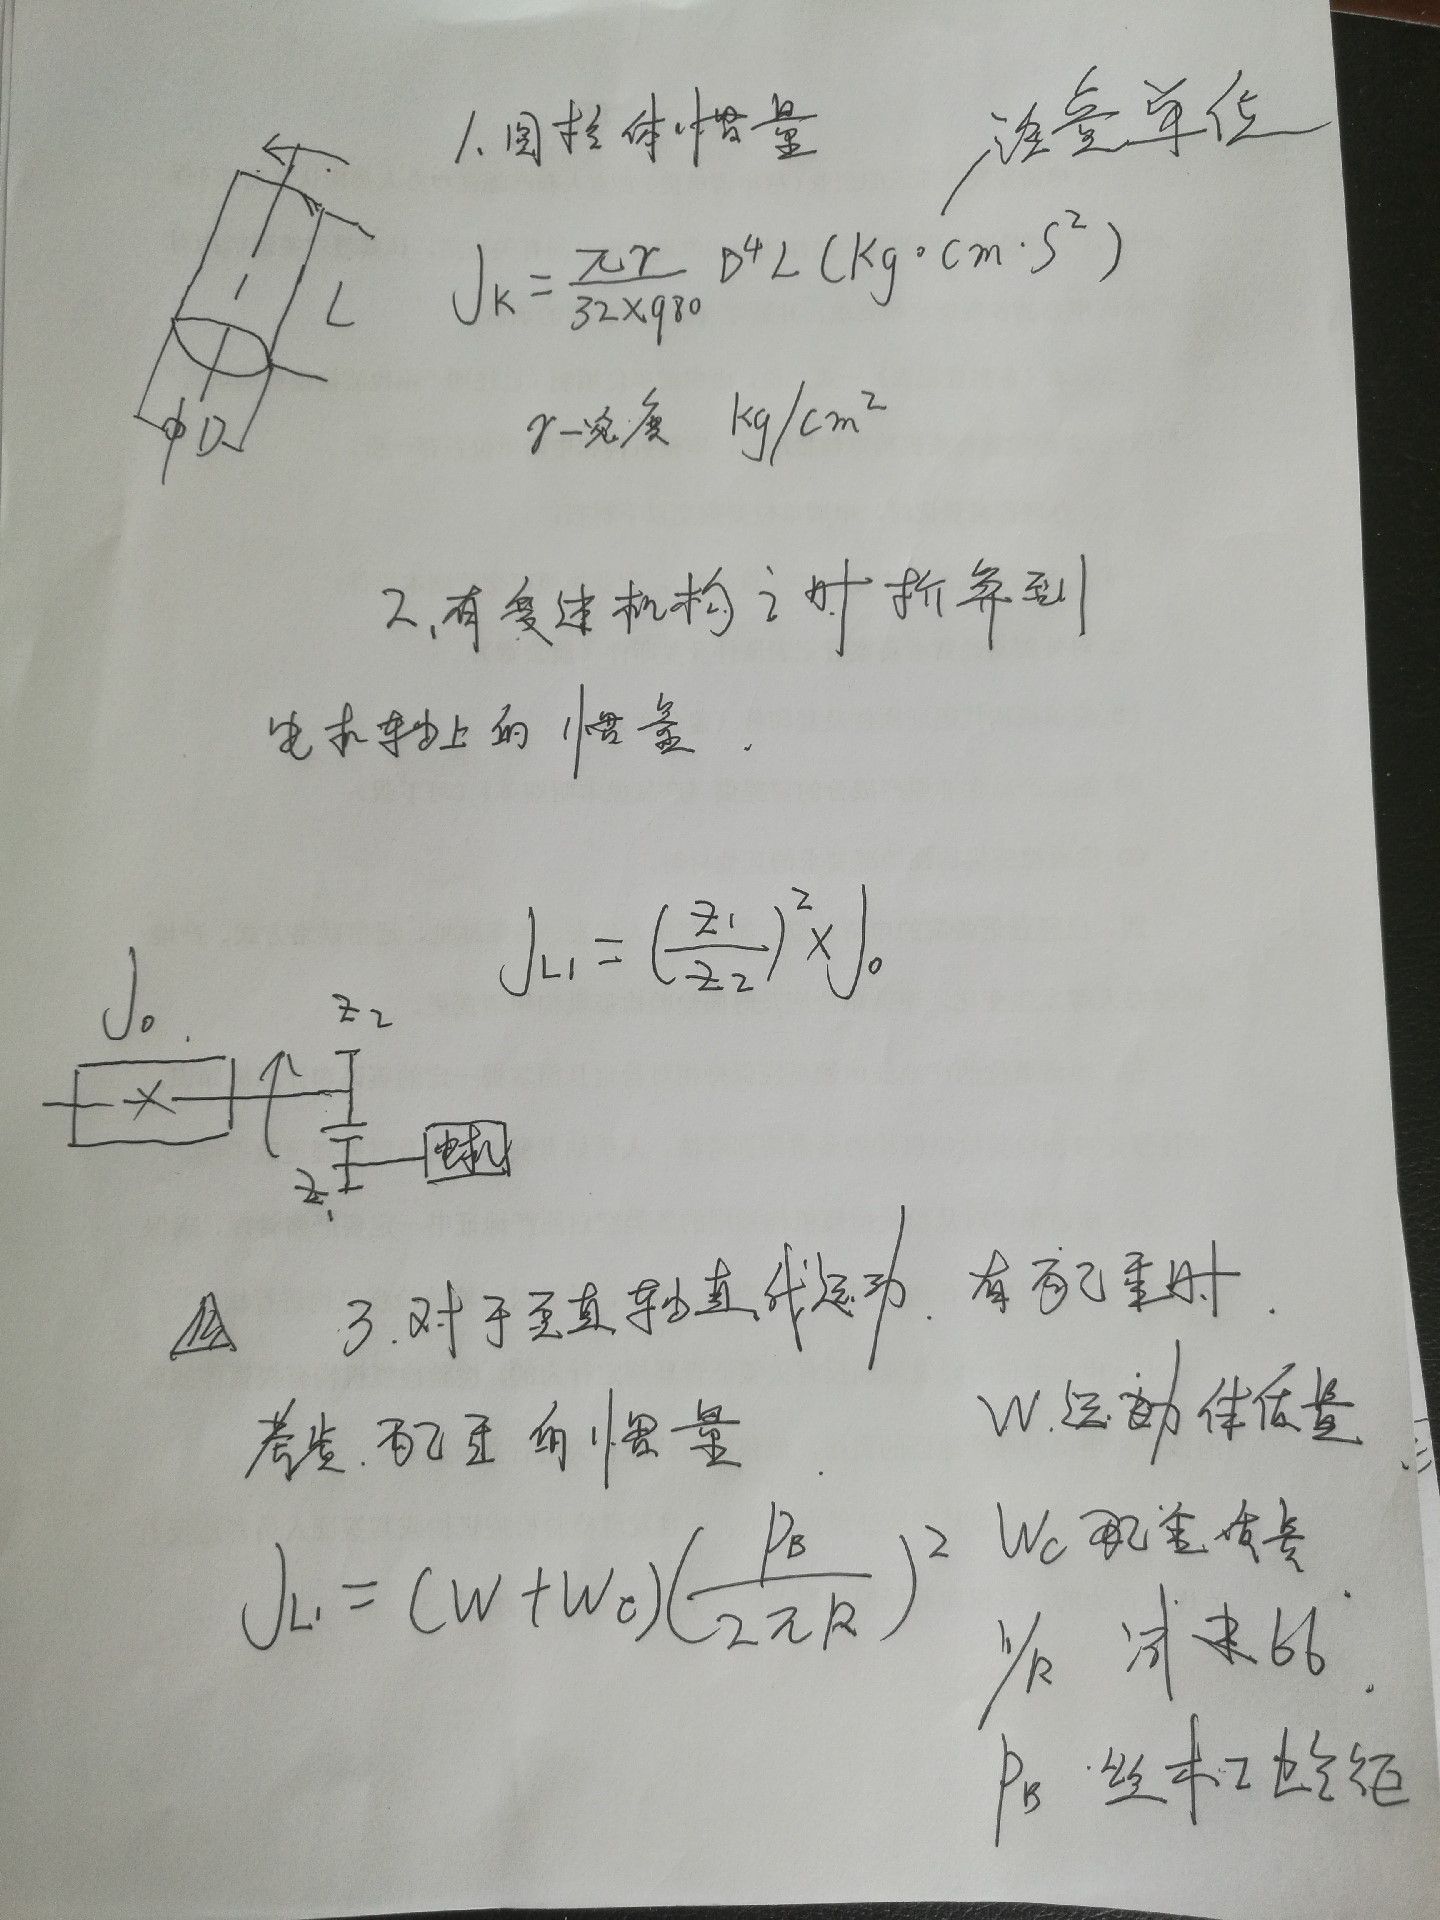 1.圆柱体惯量
注意单位
L
JK=πr/32×980 D⁴L(Kg·cm·S²)
φD
r—密度 kg/cm²
2.有变速机构之时折算到
电机轴上的惯量.
JL1=(Z1/Z2)²×J0
J0.
Z2
电机
Z1
3.对于垂直轴直线运动.有配重时.
考虑.配重的惯量.
W.运动体质量
JL1=(W+Wc)(PB/2πR)²
Wc配重质量.
1/R 减速比.
PB.丝杠之螺距